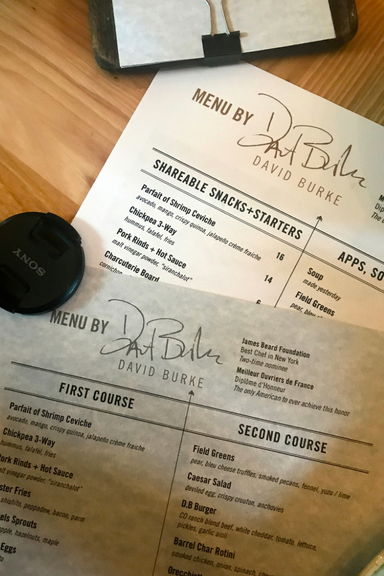 MENU BY
DAVID BURKE
SHAREABLE SNACKS+STARTERS
Parfait of Shrimp Ceviche 16
avocado, mango, crispy quinoa, jalapeño crème fraiche
Chickpea 3-Way 14
hummus, falafel, fries
Pork Rinds + Hot Sauce
malt vinegar powder, "siranchalot"
Charcuterie Board
APPS, SO
Soup
made yesterday
Field Greens
pear, bleu
SONY
MENU BY
DAVID BURKE
James Beard Foundation
Best Chef in New York
Two-time nominee
Meilleur Ouvriers de France
Diplôme d'Honneur
The only American to ever achieve this honor
FIRST COURSE
Parfait of Shrimp Ceviche
avocado, mango, crispy quinoa, jalapeño crème fraiche
Chickpea 3-Way
hummus, falafel, fries
Pork Rinds + Hot Sauce
malt vinegar powder, "siranchalot"
ster Fries
sriracha, pepperoni, bacon, parm
els Sprouts
apple, hazelnuts, maple
Eggs
SECOND COURSE
Field Greens
pear, bleu cheese truffles, smoked pecans, fennel, yuzu / lime
Caesar Salad
deviled egg, crispy crouton, anchovies
D.B Burger
CO ranch blend beef, white cheddar, tomato, lettuce,
pickles, garlic aioli
Barrel Char Rotini
smoked chicken, onion, spinach,
Orecchiette